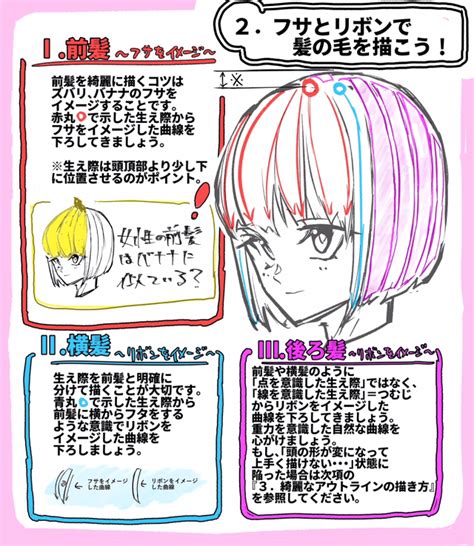 ２．フサとリボンで
髪の毛を描こう！
Ⅰ.前髪 ～フサをイメージ～
前髪を綺麗に描くコツは
ズバリ、バナナのフサを
イメージすることです。
赤丸○で示した生え際から
フサをイメージした曲線を
下ろしてきましょう。
※生え際は頭頂部より少し下
に位置させるのがポイント。
※
女性の前髪
はバナナに
似ている？
Ⅱ.横髪 ～リボンをイメージ～
生え際を前髪と明確に
分けて描くことが大切です。
青丸○で示した生え際から
前髪に横からフタをする
ような意識でリボンを
イメージした曲線を
下ろしましょう。
フサをイメージ
した曲線
リボンをイメージ
した曲線
Ⅲ.後ろ髪 ～リボンをイメージ～
前髪や横髪のように
「点を意識した生え際」ではなく、
「線を意識した生え際」＝つむじ
からリボンをイメージした
曲線を下ろしてきましょう。
重力を意識した自然な曲線を
心がけましょう。
もし、「頭の形が変になって
上手く描けない・・・」状態に
陥った場合は次項の
『３．綺麗なアウトラインの描き方』
を参照してください。